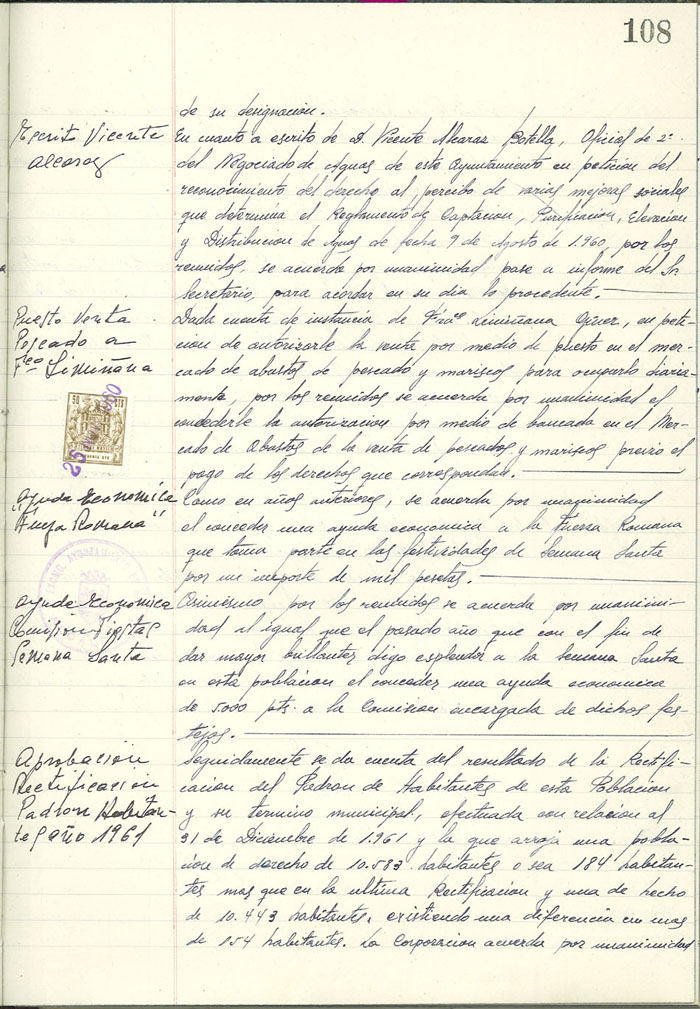 108
de su designacion.
Escrito Vicente
Alcaraz
En cuanto a escrito de D. Vicente Alcaraz Botella, Oficial de 2ª
del Negociado de Aguas de este Ayuntamiento en peticion del
reconocimiento del derecho al percibo de varias mejoras sociales
que determina el Reglamento de Captacion, Purificacion, Elevacion
y Distribucion de Aguas de fecha 9 de Agosto de 1.960, por los
reunidos, se acuerda por unanimidad pase a informe del Sr
Secretario, para acordar en su dia lo procedente.
Puesto Venta
Pescado a
Fco Limiñana
Dada cuenta de instancia de Frcº Limiñana Giner, en peti-
cion de autorizarle la venta por medio de puesto en el mer-
cado de abastos de pescado y mariscos para ocuparlo diaria-
mente, por los reunidos se acuerda por unanimidad el
concederle la autorizacion por medio de bancada en el Mer-
cado de Abastos de la venta de pescados y mariscos previo el
pago de los derechos que correspondan.
50 CTS
Ayuda Economica
"Fuerza Romana"
Como en años anteriores, se acuerda por unanimidad
el conceder una ayuda economica a la Fuerza Romana
que toma parte en las festividades de Semana Santa
por un importe de mil pesetas.
Ayuda Economica
Comision Fiestas
Semana Santa
Asimismo por los reunidos se acuerda por unanimi-
dad al igual que el pasado año que con el fin de
dar mayor brillantez digo esplendor a la Semana Santa
en esta poblacion el conceder una ayuda economica
de 5000 pts. a la Comision encargada de dichos fes-
tejos.
Aprobacion
Rectificacion
Padron Habitan-
tes año 1961
Seguidamente se da cuenta del resultado de la Rectifi-
cacion del Padron de Habitantes de esta Poblacion
y su termino municipal, efectuada con relacion al
31 de Diciembre de 1.961 y la que arroja una pobla-
cion de derecho de 10.583 habitantes o sea 184 habitan-
tes mas que en la ultima Rectificacion y una de hecho
de 10.443 habitantes, existiendo una diferencia en mas
de 154 habitantes. La Corporacion acuerda por unanimidad